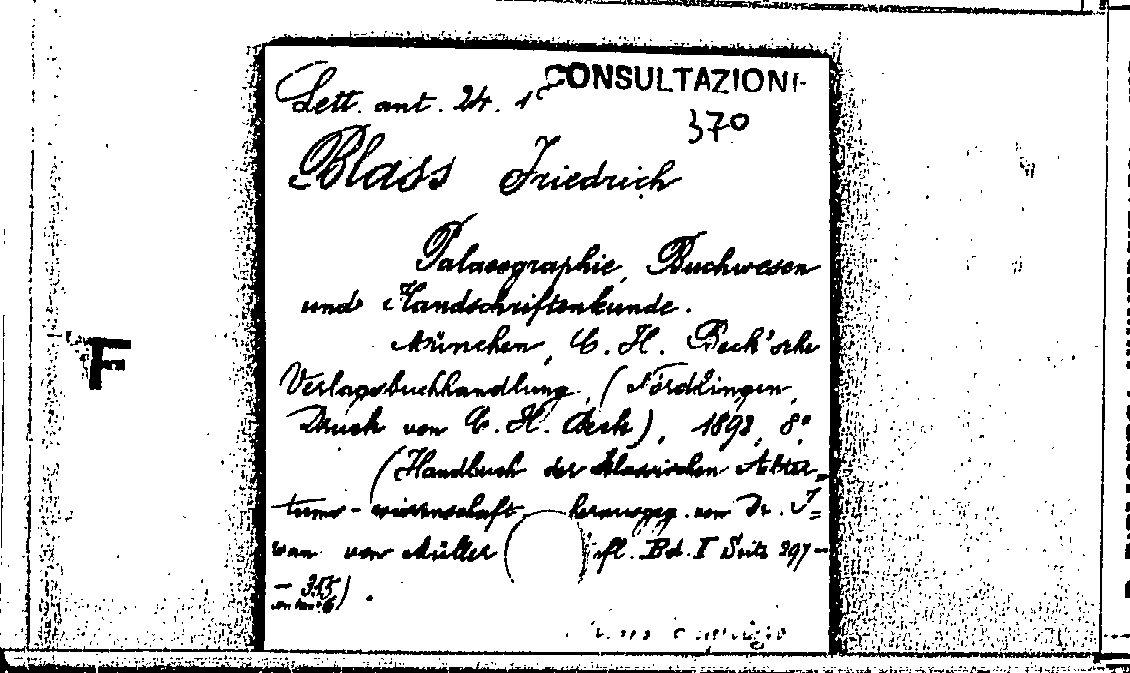 CONSULTAZIONI
Lett. ant. 24. 1
370
Blass Friedrich
Palaeographie, Buchwesen
und Handschriftenkunde.
München, C. H. Beck'sche
F
Verlagsbuchhandlung, (Nördlingen,
Druck von C. H. Beck), 189 , 8°
(Handbuch der klassischen Alter=
tums-wissenschaft herausgeg. von Dr. I=
wan von Müller Bd. I Seite
- 355)